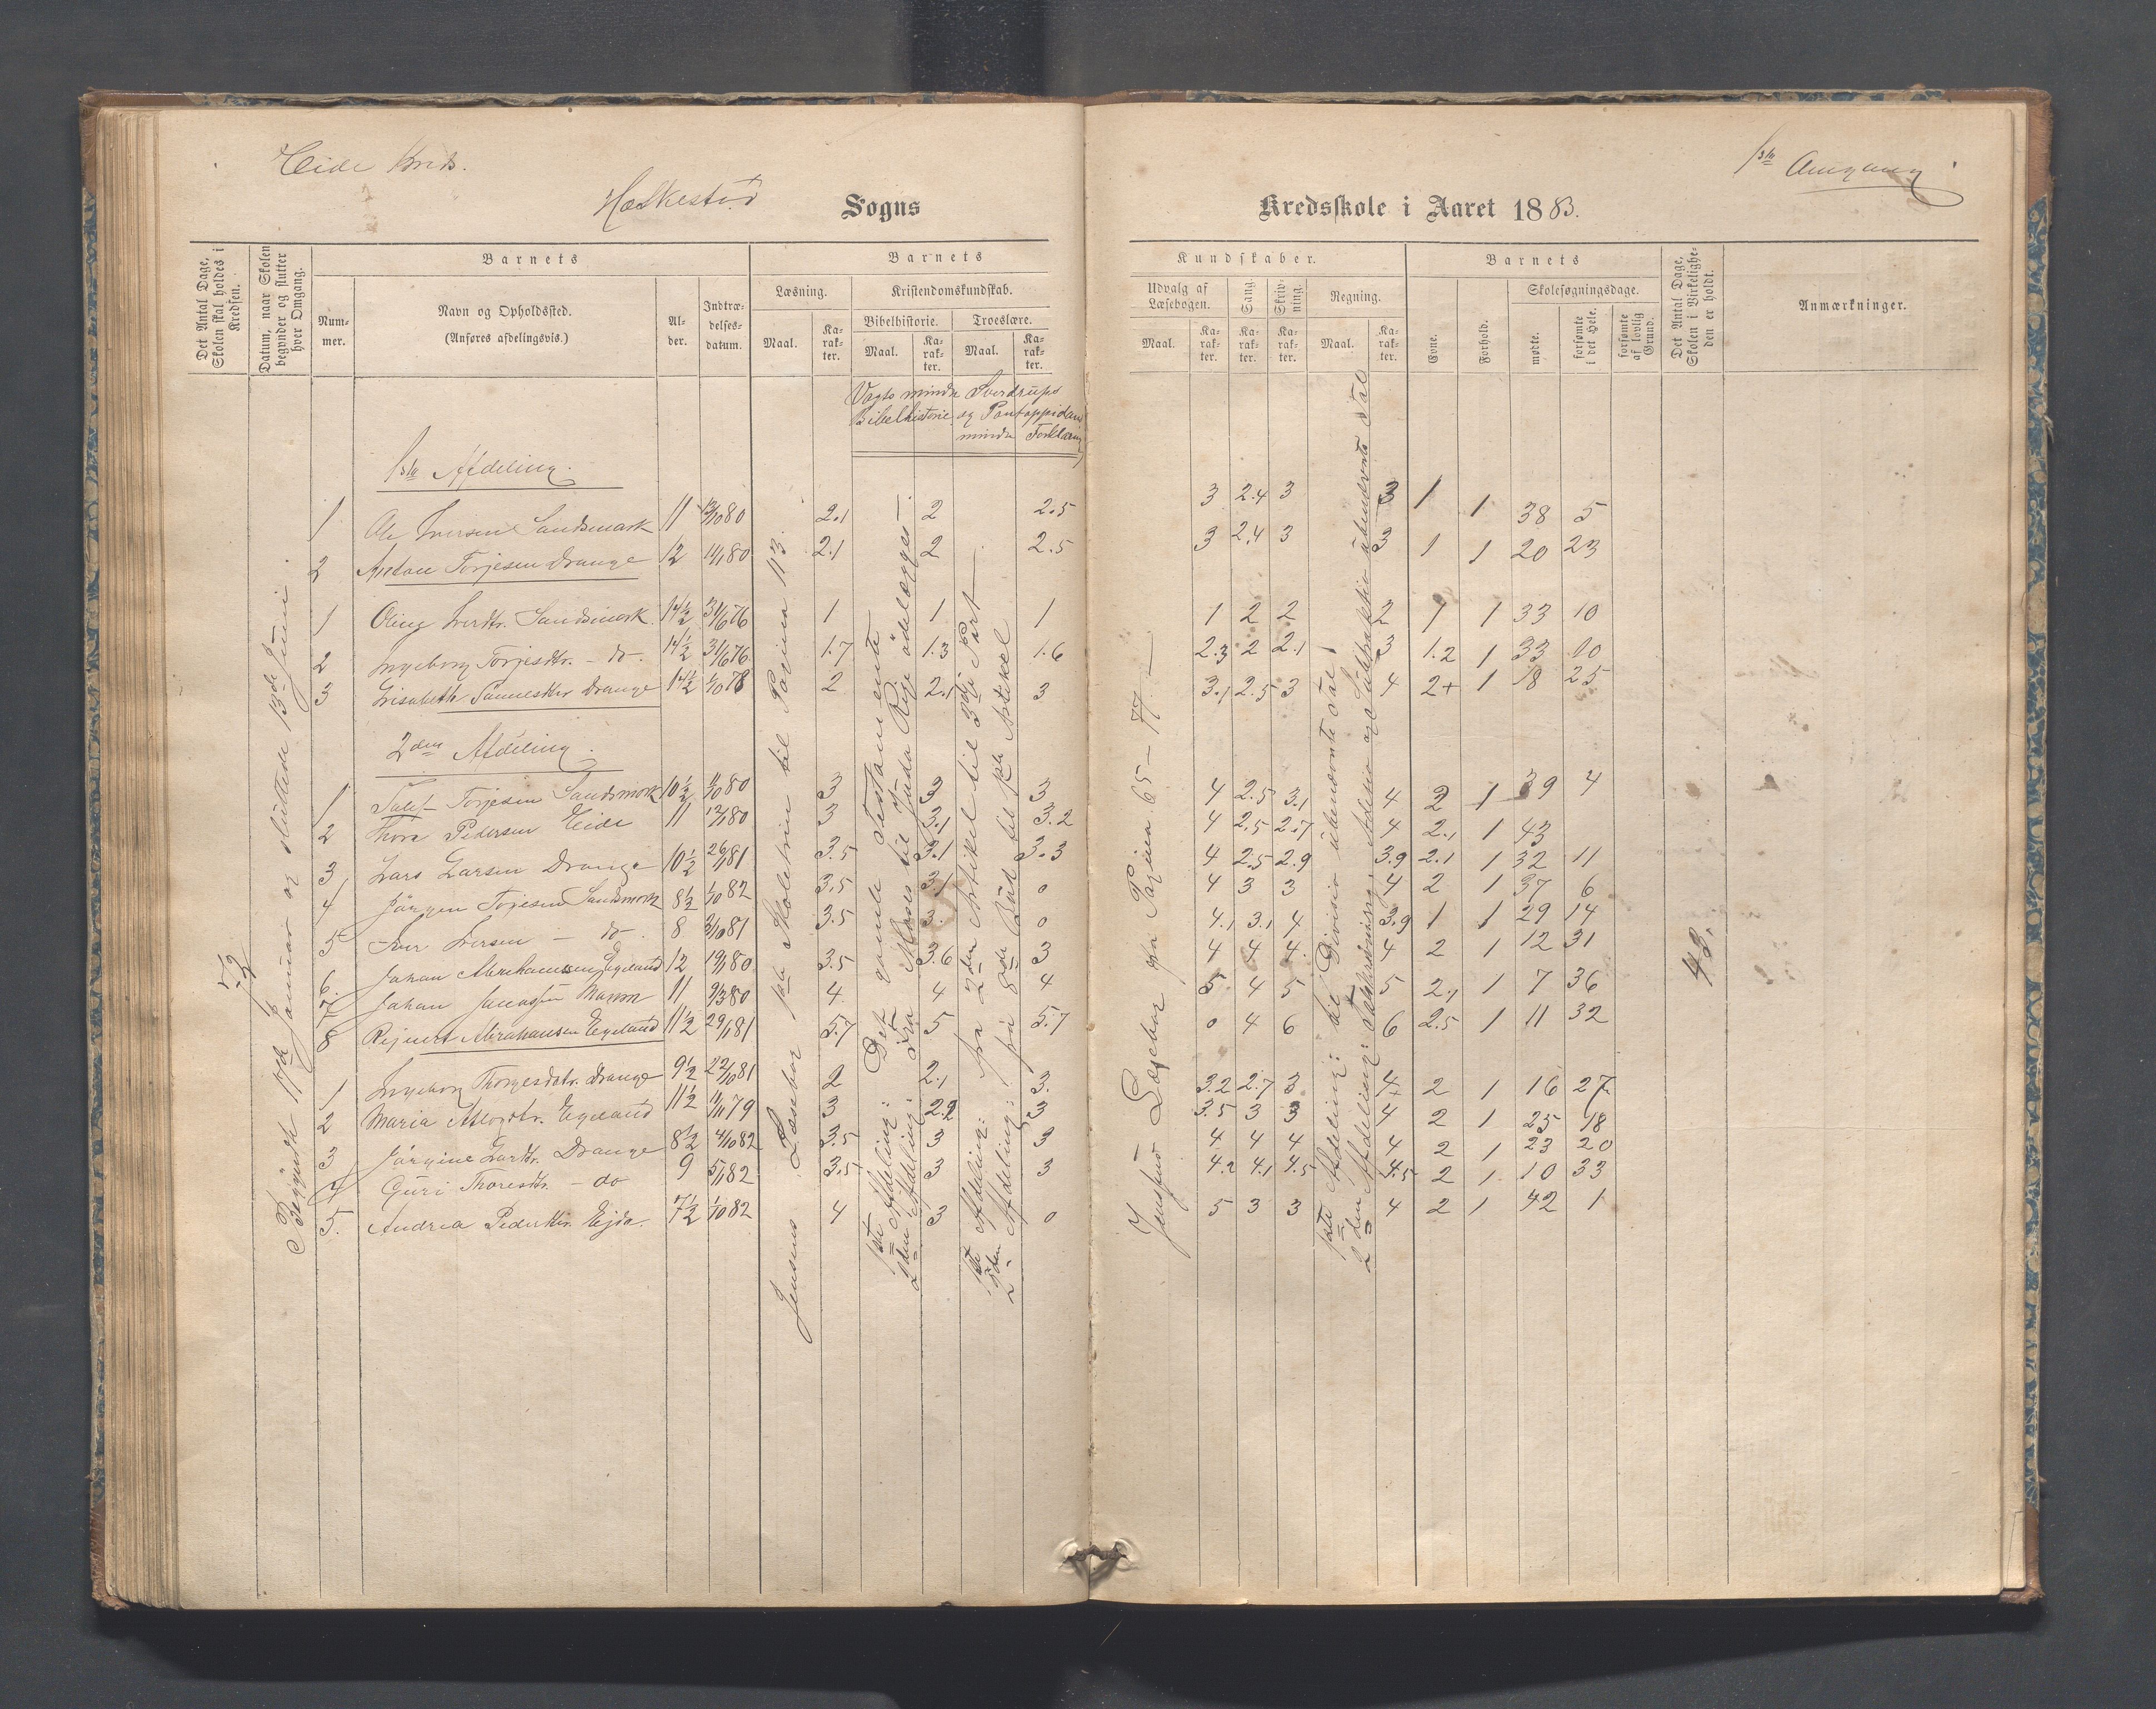 Eide Kreds.
1ste Omgang
Heskestad Sogns Kredsskole i Aaret 1883.
Det Antal Dage, Skolen skal holdes i Kredsen.
Datum, naar Skolen begynder og slutter hver Omgang.
Barnets
Nummer.
Navn og Opholdssted.
(Anføres afdelingsvis.)
Alder.
Indtrædelsesdatum.
Barnets
Læsning.
Maal.
Karakter.
Kristendomskundskab.
Bibelhistorie.
Maal.
Karakter.
Troeslære.
Maal.
Karakter.
Kundskaber.
Udvalg af Læsebogen.
Maal.
Karakter.
Sang.
Karakter.
Skrivning.
Karakter.
Regning.
Maal.
Karakter.
Barnets
Evne.
Forhold.
Skolesøgningsdage.
mødte.
forsømte i det Hele.
forsømte af lovlig Grund.
Det Antal Dage, Skolen i Virkeligheden er holdt.
Anmærkninger.
Vogts mindre Bibelhistorie
Sverdrups og Pontoppidans mindre Forklaring
72
Begyndte 11te Januar og sluttede 13de Juni.
Jensens Læsebog 1ste Skoletrin til Pagina 113.
1ste Afdeling: Det gamle Testamente
2den Afdeling: Fra Moses til Juda Rige ødelægges —
1ste Afdeling: fra 2den Artikel til 3die Part —
2den Afdeling: fra 8de Bud til 1ste Artikel
Jensens Læsebog fra Pagina 65 — 77 —
1ste Afdeling: til Division übenævnte Tal
2den Afdeling: Talskrivning, Addition og Subtraktion übenævnte Tal
48.
1ste Afdeling.
1 Ole Iversen Sandsmark 11 13/10 80 2.1 2 2.5 3 2.4 3 3 1 1 38 5
2 Anton Torjesen Drange 12 11/1 80 2.1 2 2.5 3 2.4 3 3 1 1 20 23
1 Oling Iverdtr. Sandsmark 14½ 31/6 76 1 1 1 1 2 2 2 1 1 33 10
2 Ingeborg Torjesdtr. – do. 14½ 31/6 76 1.7 1.3 1.6 2.3 2 2.1 3 1.2 1 33 10
3 Lisabeth Samuelsdtr Drange 14½ 1/10 78 2 2.1 3 3.1 2.5 3 4 2+ 1 18 25
2den Afdeling.
1 Tolef Torjesen Sandsmork 10½ 1/10 80 3 3 3 4 2.5 3.1 4 2 1 39 4
2 Thore Pedersen Eide 11 12/1 80 3 3.1 3.2 4 2.5 2.7 4 2.1 1 43
3 Lars Larsen Drange 10½ 26/1 81 3.5 3.1 3.3 4 2.5 2.9 3.9 2.1 1 32 11
4 Jörgen Torjesen Sandsmork 8½ 1/10 82 3.5 3.1 0 4 3 3 4 2 1 37 6
5 Iver Iversen – do. 8 3/10 81 3.5 3. 0 4.1 3.1 4 3.9 1 1 29 14
6. Johan Abrahamsen Egeland 12 19/1 80 3.5 3.6 3 4 4 4. 4 2 1 12 31
7 Johan 11 9/3 80 4 4 4 5 4 5 5 2.1 1 7 36
8 Rejnert Abrahamsen Egeland 11½ 29/1 81 5.7 5 5.7 0 4 6 6 2.5 1 11 32
1 Ingeborg Thorgesdatr. Drange 9½ 22/10 81 2 2.1 3. 3.2 2.7 3 4 2 1 16 27
2 Maria Egeland 11½ 11/11 79 3 2.2 3 3.5 3 3 4 2 1 25 18
3 Jörgine Larsdtr. Drange 8½ 4/10 82 3.5 3 3 4 4 4 4 2 1 23 20
4 Guri Thoresdtr. – do 9 5/1 82 3.5 3 3 4.2 4.1 4.5 4.5 2 1 10 33
5. Andrea Pedersdtr. Ejde. 7½ 1/10 82 4 3 0 5 3 3 4 2 1 42 1